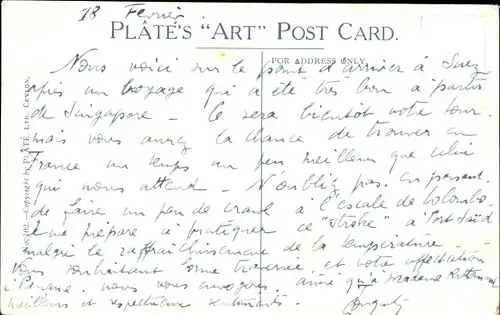 18 Février
PLÂTÉ'S "ART" POST CARD.
FOR ADDRESS ONLY.
Nous voici sur le point d'arriver à Suez
après un voyage qui a été très bon à partir
de Singapore - Ce sera bientôt votre tour.
mais vous aurez la chance de trouver en
France un temps un peu meilleur que celui
qui nous attend - N'oubliez pas, en passant,
de faire un peu de crawl à l'escale de Colombo.
je me prépare à pratiquer ce "stroke" à Port Saïd
malgré le raffraîchissement de la température -
Vous souhaitant bonne traversée et votre affectation
à nous vous envoyons, ainsi qu'à Madame
meilleurs et respectueux sentiments -
Copyright by PLÂTÉ LTD. CEYLON.